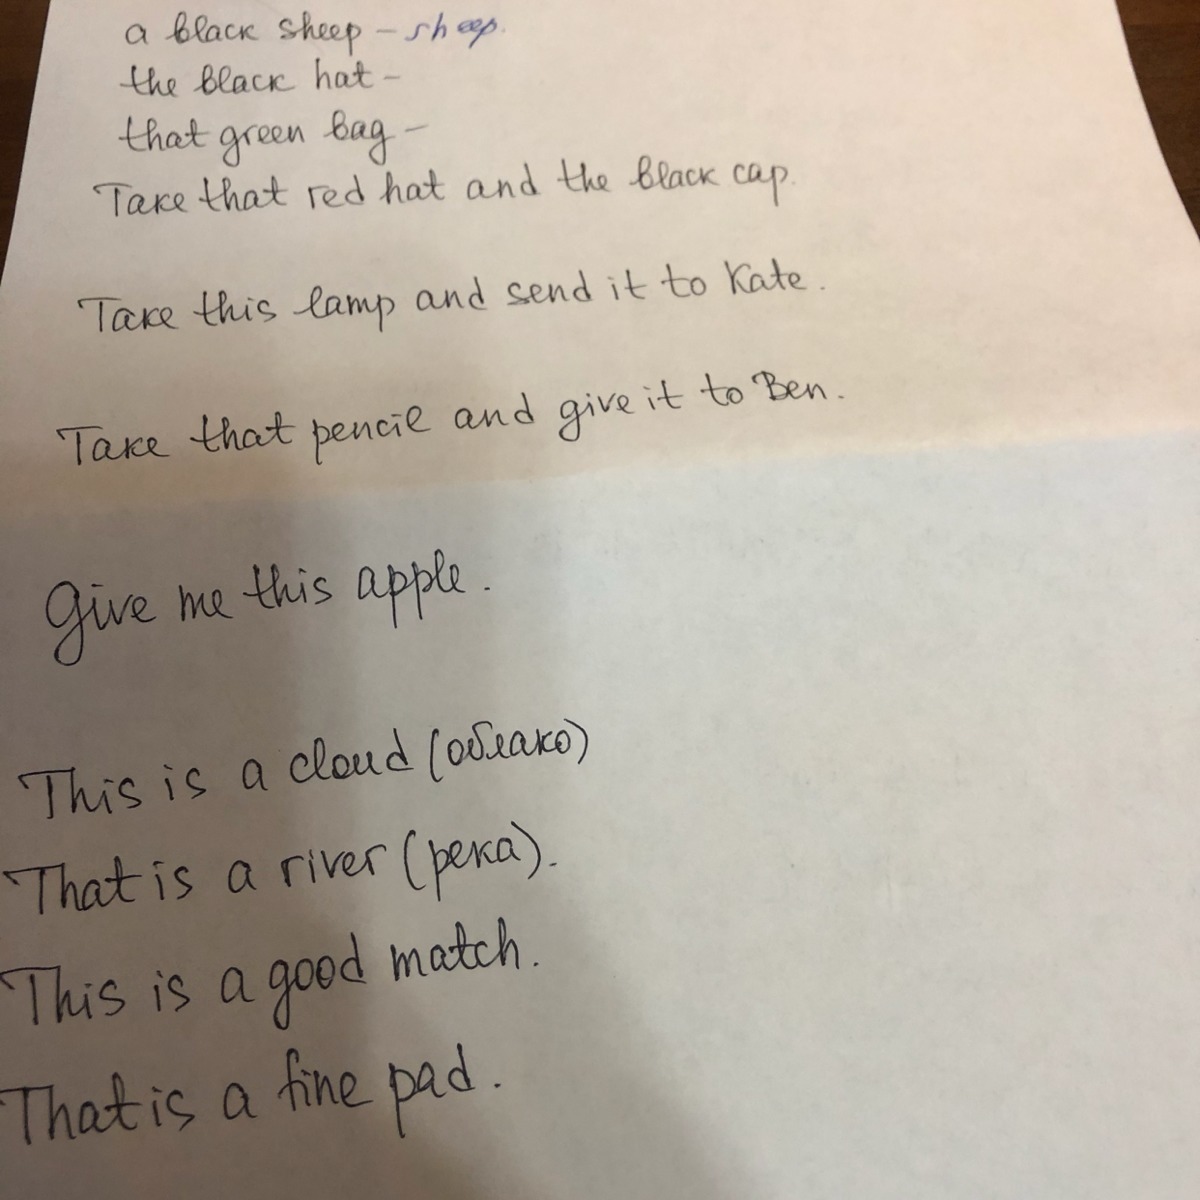 a black sheep - sheep.
the black hat -
that green bag -
Take that red hat and the black cap.
Take this lamp and send it to Kate.
Take that pencil and give it to Ben.
Give me this apple.
This is a cloud (облако)
That is a river (река).
This is a good match.
That is a fine pad.